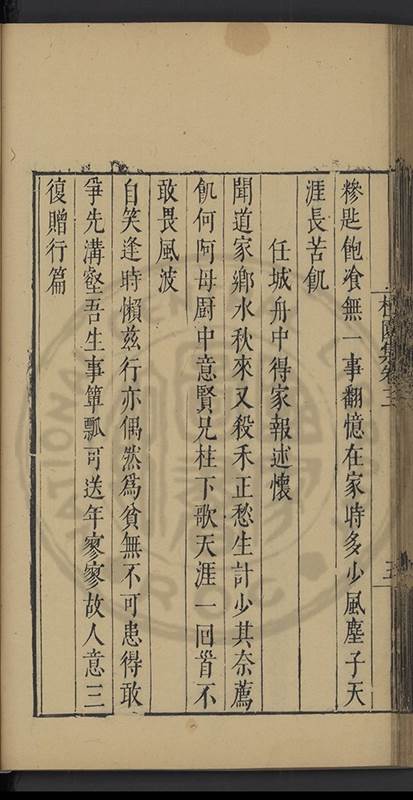 糝匙飽飡無一事翻憶在家時多少風塵子天
涯長苦飢
任城舟中得家報述懷
聞道家鄉水秋來又殺禾正愁生計少其奈薦
飢何阿母厨中意賢兄柱下歌天涯一回首不
敢畏風波
自笑逢時懶茲行亦偶然爲貧無不可患得敢
爭先溝壑吾生事簞瓢可送年寥寥故人意三
復贈行篇